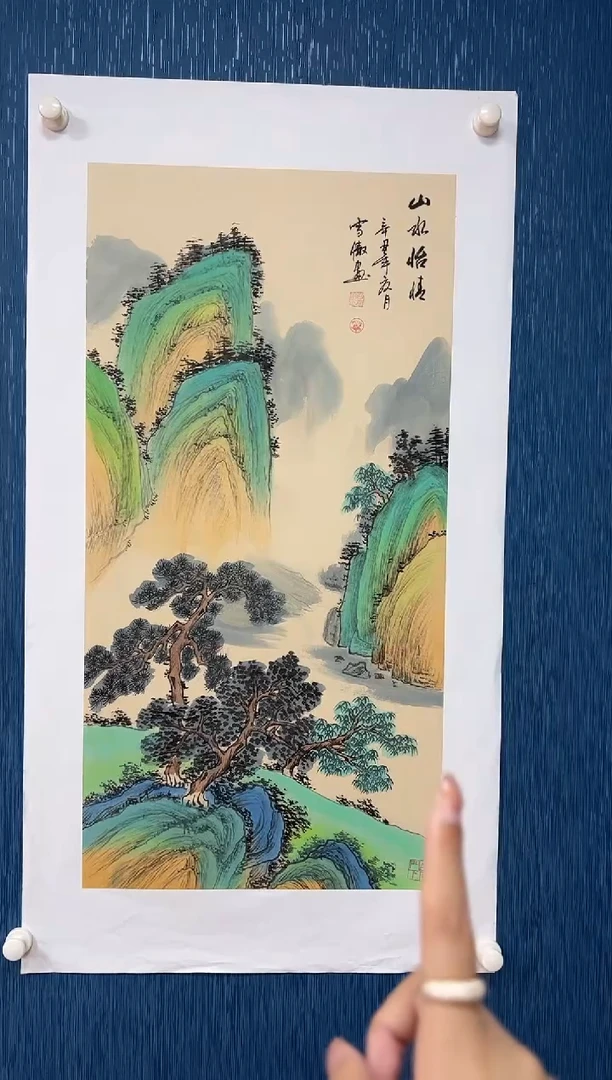 山水怡情
辛丑年夜月
雪傲画